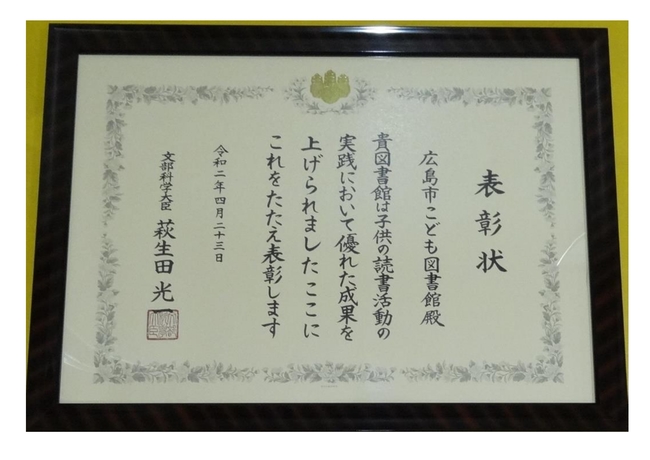 表彰状
広島市こども図書館殿
貴図書館は子供の読書活動の
実践において優れた成果を
上げられましたここに
これをたたえ表彰します
令和二年四月二十三日
文部科学大臣 萩生田光一